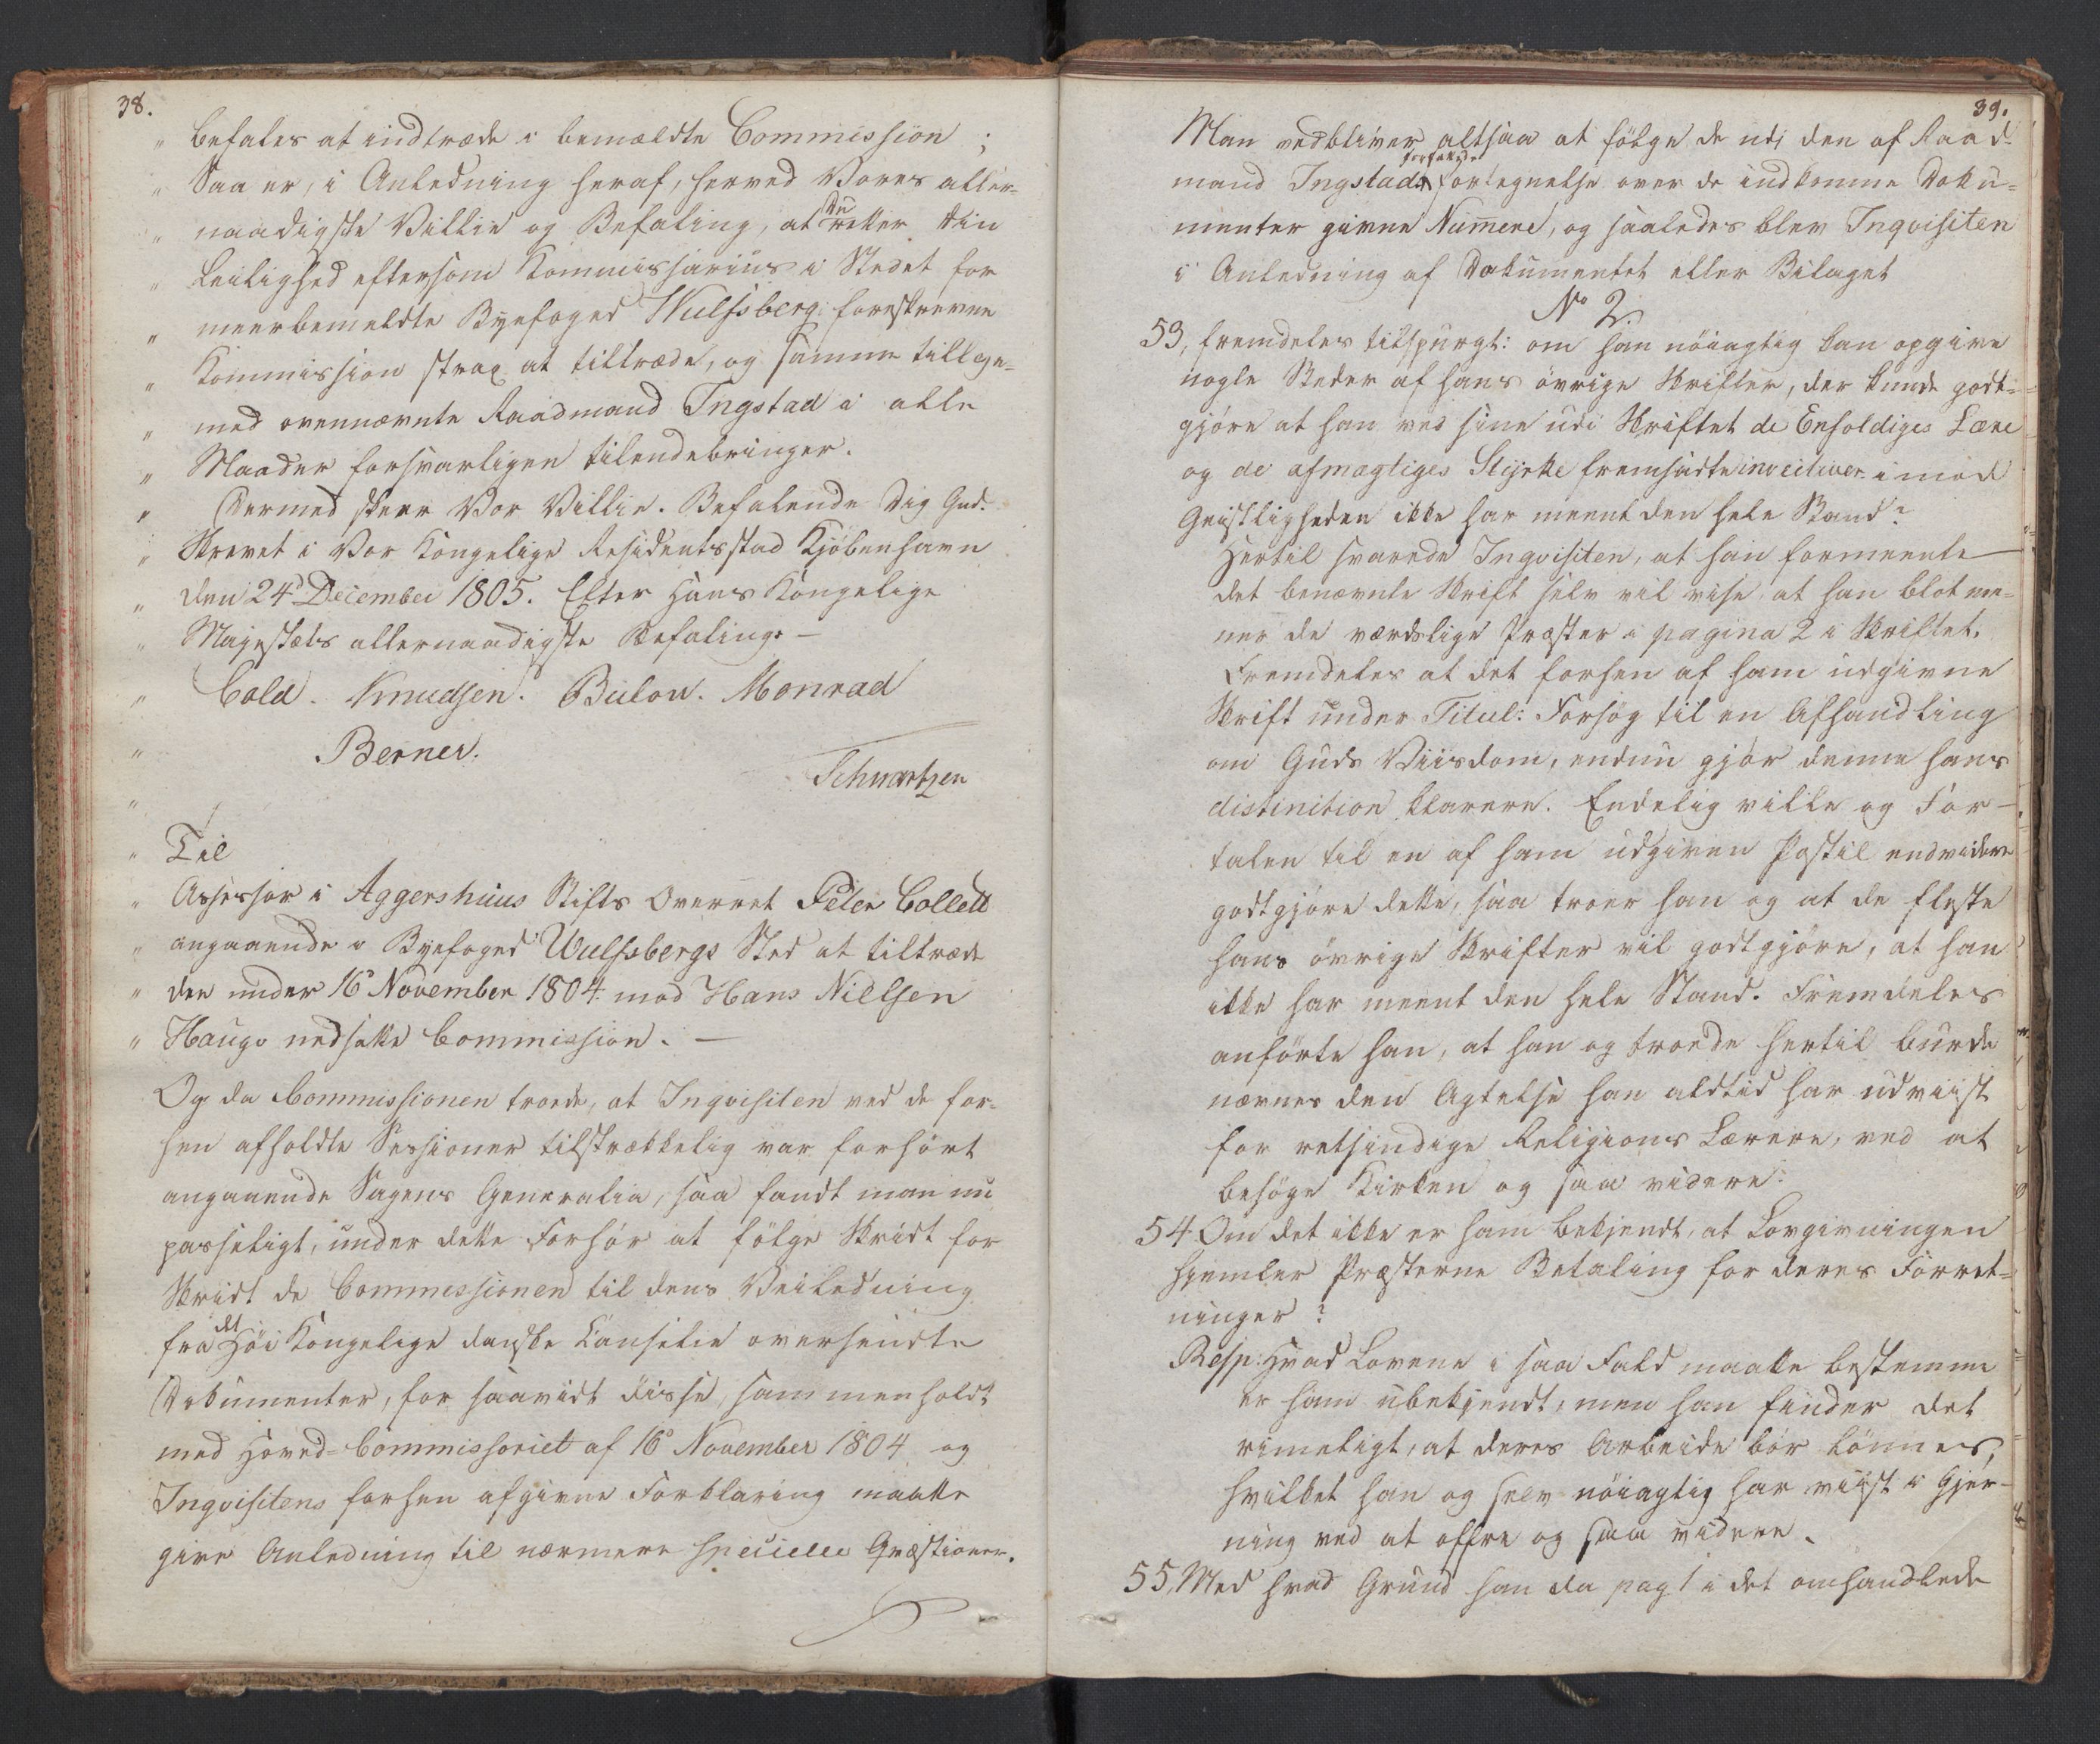 38.
„ befales at indtræde i bemældte Commission ;
„ Saa er, i Anledning heraf, herved Vores aller-
„ naadigste Villie og Befaling, at Du retter din
„ Leilighed eftersom Kommissarius i Stedet for
„ meerbemeldte Byefoged Wulfsberg forskrevne
„ Kommission strax at tiltræde, og samme tillige-
„ med ovennævnte Raadmand Ingstad i alle
„ Maader forsvarligen tilendebringer.
„ Dermed skeer Vor Villie. Befalende Dig Gud.
„ Skrevet i Vor Kongelige Residentsstad Kjöbenhavn
„ den 24d December 1805. Efter Hans Kongelige
„ Majestæts allernaadigste Befaling. —
„ Cold. Knudsen. Bülow. Monrad
„ Berner.
Schwartzen
„
„ Til
„ Assessor i Aggershuus Stifts Overret Peter Collett
„ angaaende i Byefoged Wulfsbergs Sted at tiltræde
„ den under 16d November 1804. mod Hans Nielsen
„ Hauge nedsatte Commission. —
Og da Commissionen troede, at Inqvisiten ved de for-
hen afholdte Sessioner tilstrækkelig var forhört
angaaende Sagens Generalia, saa fandt man nu
passeligt, under dette Forhör at fölge Skridt for
Skridt de Commissionen til dens Veiledning
fra det Höi Kongelige danske Cansellie oversendte
Dokumenter, for saavidt disse, sammenholdt
med Hoved-Commissoriet af 16d November 1804 og
Inqvisitens forhen afgivne Forklaring maatte
give Anledning til nærmere specielle Qvæstioner.
39.
Man vedbliver altsaa at fölge de udi den af Raad-
mand Ingstad forfattede Fortegnelse over de indkomne Doku-
menter givne Numere, og saaledes blev Inqvisiten
i Anledning af Dokumentet eller Bilaget
No 2.
53, fremdeles tilspurgt: om han nöiagtig kan opgive
nogle Steder af hans övrige Skrifter, der kunde godt-
gjöre at han ved sine udi Skriftet de Enfoldiges Lære
og de afmægtiges Styrke fremsadte invectiver imod
Geistligheden ikke har meent den hele Stand?
Hertil svarede Inqvisiten, at han formeente
det benævnte Skrift selv vil vise, at han blot me-
ner de værdslige Præster i pagina 2 i Skriftet.
Fremdeles at det forhen af ham udgivne
Skrift under Titul: Forsög til en Afhandling
om Guds Viisdom, endnu gjör denne hans
distinition klarere. Endelig ville og For-
talen til en af ham udgiven Postil endvidere
godtgjöre dette, saa troer han og at de fleste
hans övrige Skrifter vil godtgjöre, at han
ikke har meent den hele Stand. Fremdeles
anförte han, at han og troede hertil burde
nævnes den Agtelse han altid har udviist
for retsindige Religions Lærere, ved at
besöge Kirken og saa videre.
54. Om det ikke er ham bekjendt, at Lovgivningen
hjemler Præsterne Betaling for deres Forret-
ninger?
Resp: Hvad Lovene i saa Fald maatte bestemme
er ham ubekjendt, men han finder det
rimeligt, at deres Arbeide bör lönnes,
hvilket han og selv nöiagtig har viist i Gjer-
ning ved at offre og saa videre.
55, Med hvad Grund han da pag 1 i det omhandlede